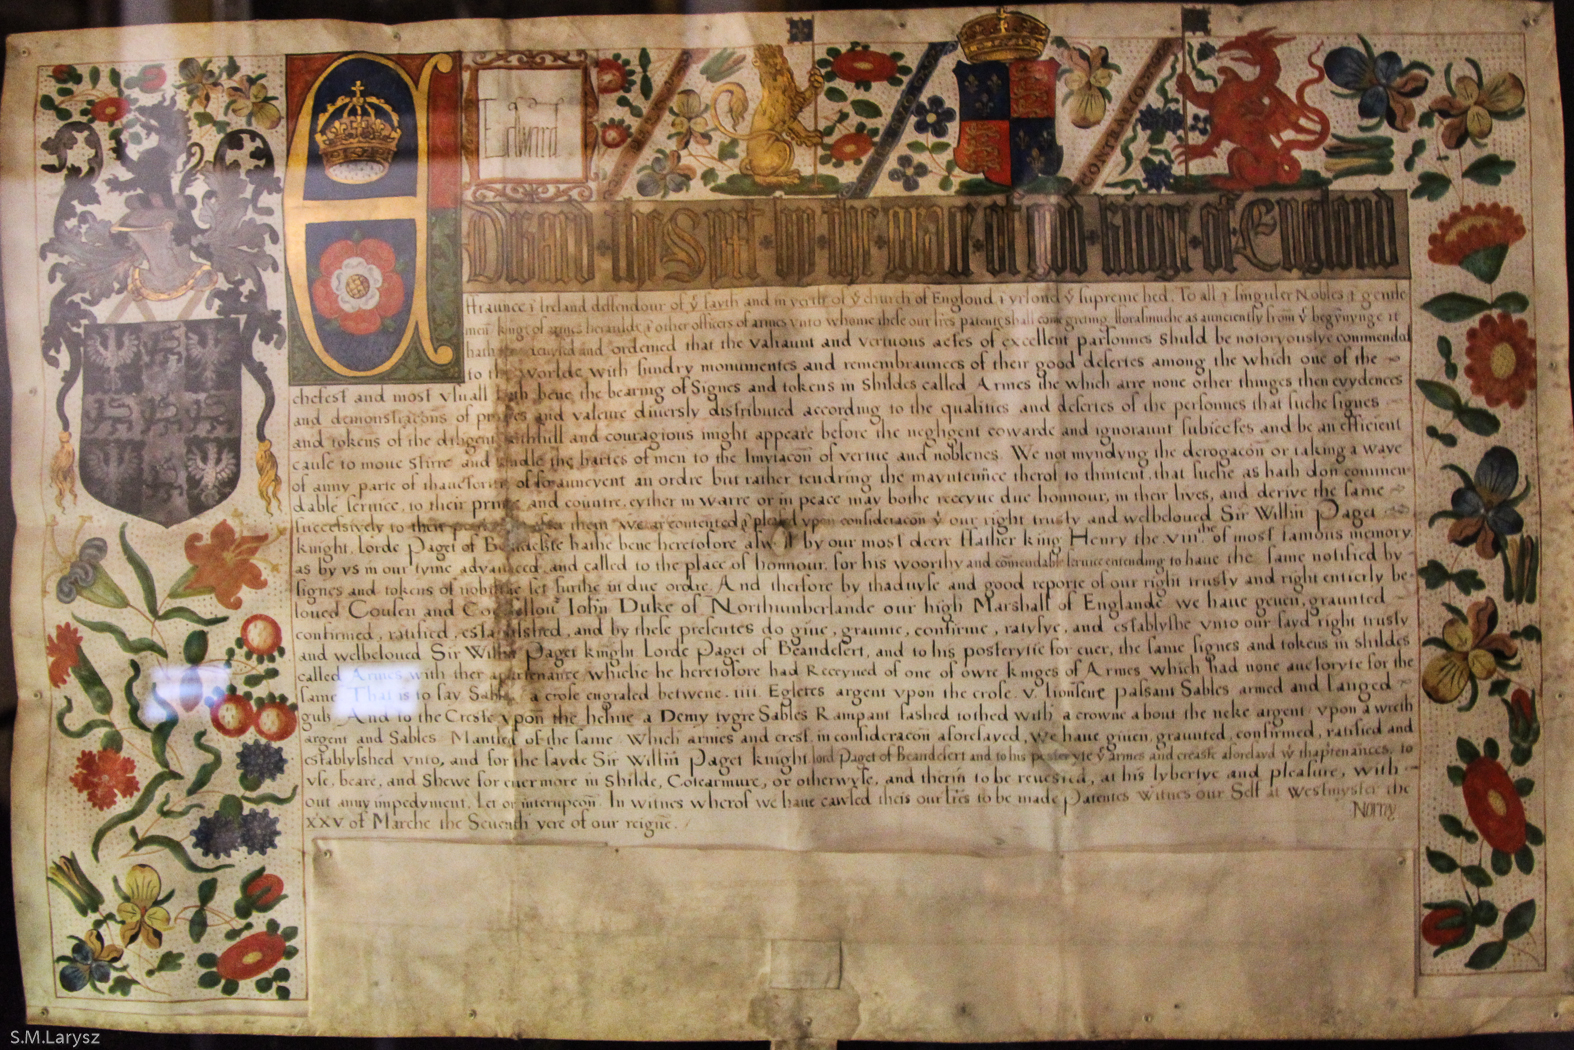 Edward
CONTRA
Edward the Sext by the grace of god kinge of England
ffraunce & Ireland deffendour of yͤ fayth and in yerth of yͤ church of Englond & yrlond yͤ supreme hed. To all & singuler Nobles & gentle
men kings of armes herauldes & other officers of armes vnto whome these our lrēs patents shall come greting. fforasmuche as aunciently from yͤ begynynge it
hath devysid and ordened that the valiaunt and vertuous actes of excellent parsonnes shuld be notoryously commendid
to the Worlde with sundry monumentes and remembraunces of their good desertes among the which one of the
chefest and most vsuall hath bene the bearing of Signes and tokens in Shildes called Armes the which arre none other thinges then evydences
and demonstracōns of and valeure diversly distributed according to the qualities and desertes of the personnes that suche signes
and tokens of the diligent faithfull and couragious might appeare before the neghgent cowarde and ignoraunt subiectes and be an efficient
cause to moue stirre and kindle the hartes of men to the Imytacōn of vertue and noblenes. We not myndyng the derogacōn or taking a waye
of anny parte of thauctorite of so auncyent an ordre but rather tendring the mayntenn̄ce therof to thintent that suche as hath don commen
dable service, to their prince and countre, eyther in warre or in peace may bothe receyue due honnour, in their lives, and derive the same
successively to their after them We ar contented & pleased vpon consideracōn yͭ our right trusty and welbeloued Sir Willm̄ Paget
knight, Lorde Paget of Beaudeserte hathe bene heretofore by our most deere ffather king Henry the viii.ᵗʰᵉ of most famous memory
as by vs in our tyme advaunced and called to the place of honnour, for his woorthy and comendable seruice entending to haue the same notified by
signes and tokens of nobilite set furthe in due ordre And therfore by thaduyse and good reporte of our right trusty and right entierly be
loued Cousen and Iohn Duke of Northumberlande our high Marshall of Englande we haue geuen, graunted
confirmed, ratified, established, and by these presentes do giue, graunte, confirme, ratyfye, and establyshe vnto our sayd right trusty
and welbeloued Sir Willm̄ Paget knight Lorde Paget of Beaudesert, and to his posterytie for euer, the same signes and tokens in shildes
called Armes with ther apurtenance whiche he heretofore had Receyued of one of owre kinges of Armes which had none auctoryte for the
same That is to say Sables a crose engraled betwene .iiii. Egletes argent vpon the crose .v. lionseux passant Sables armed and langed
guls And to the Creste vpon the helme a Demy tygre Sables Rampant tashed tothed with a crowne about the neke argent vpon a wreth
argent and Sables Mantled of the same Which armes and crest in consideracōn aforesayed, We haue giuen, graunted, confirmed, ratified and
establysshed vnto, and for the sayde Sir Willm̄ Paget knight lord Paget of Beaudesert and to his posteryte yͤ armes and creaste aforesayd wͭ thaprtenances, to
vse, beare, and Shewe for euermore in Shilde, Cotearmure, or otherwyse, and therin to be revested, at his lybertye and pleasure, with
out anny impedyment, Let or interupcōn. In witnes wherof we haue cawsed theis our lrēs to be made Patentes Witnes our Self at Westmyster the
XXV of Marche the Seuenth yere of our reigne.
S.M.Larysz